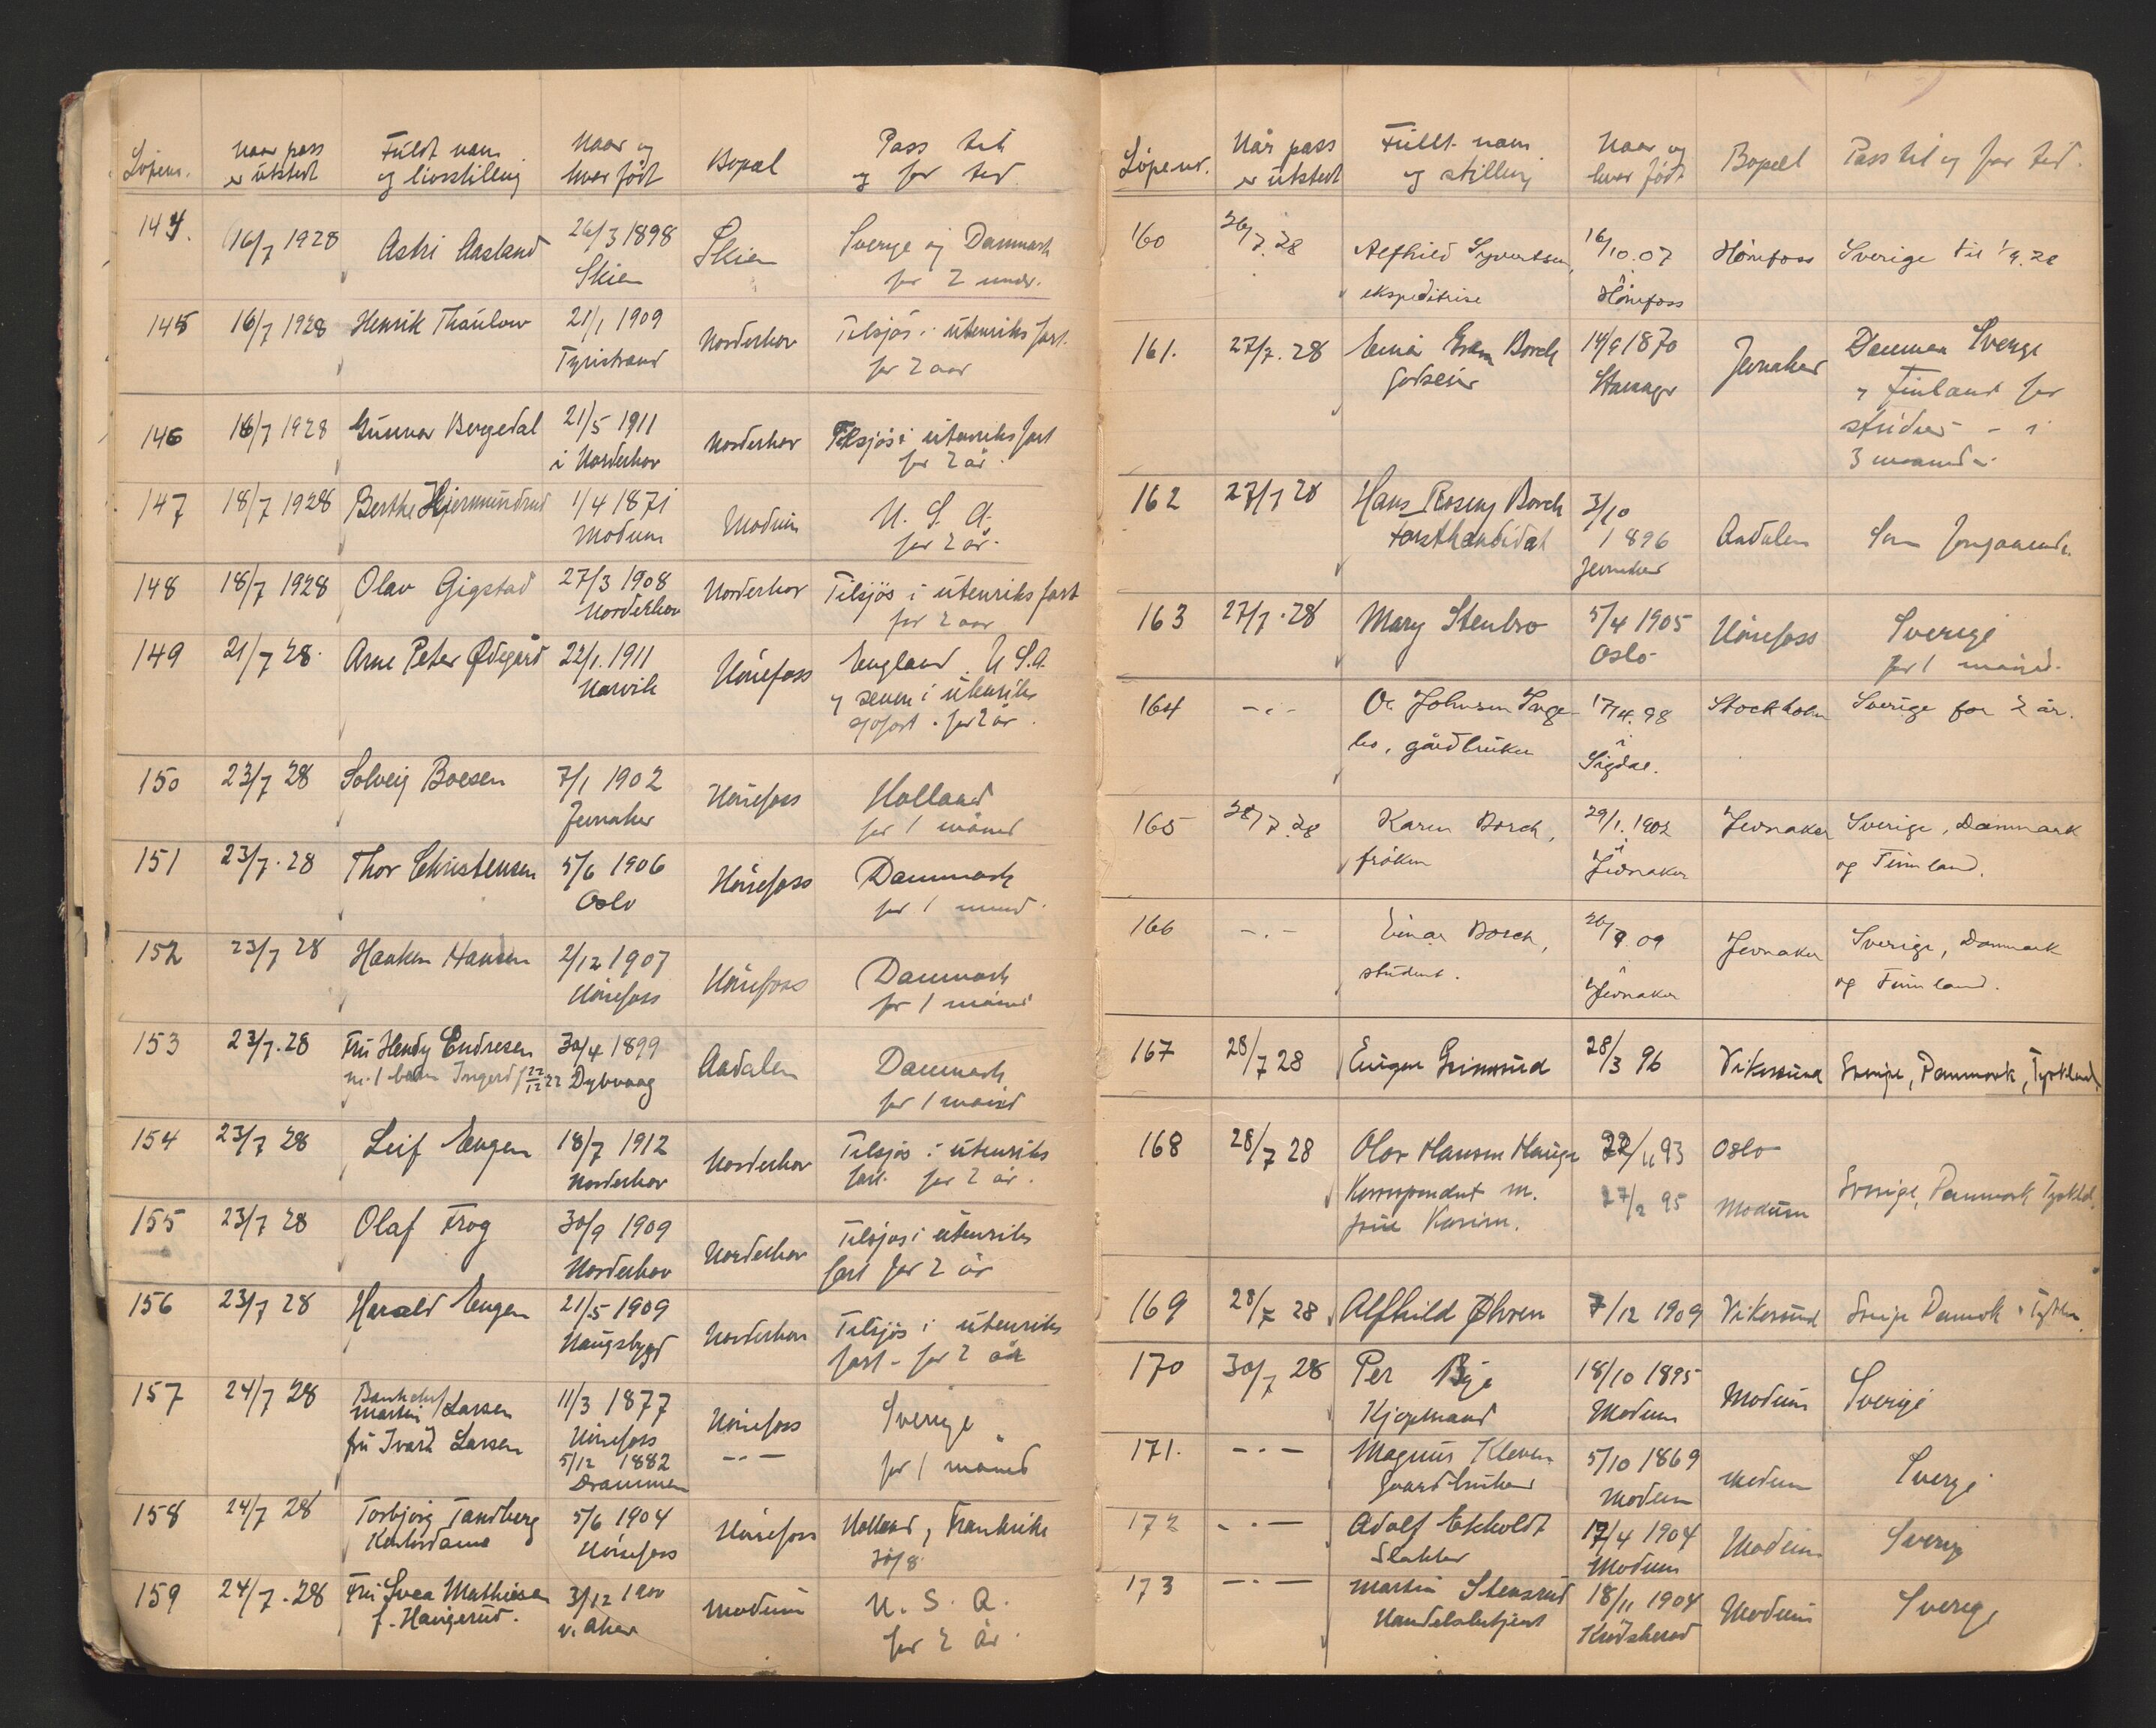 Løpenr. Naar pass er utstedt Fuldt navn og livsstilling Naar og hvor født Bopæl Pass til og for tid
144. 16/7 1928 Astri Aasland 26/3 1898 Skien Skien Sverge og Danmark for 2 mndr.
145 16/7 1928 Henrik Thaulow 21/1 1909 Tyristrand Norderhov Tilsjøs i utenriks fart. for 2 aar
146 16/7 1928 Gunnar Bergedal 21/5 1911 i Norderhov Norderhov Tilsjøs i utenriks fart for 2 år.
147 18/7 1928 Berthe Hjermundrud 1/4 1871 Modum Modum U. S. A. for 2 år.
148 18/7 1928 Olav Gigstad 27/3 1908 Norderhov Norderhov Tilsjøs i utenriks fart for 2 aar
149 21/7 28. Arne Peter Ødegård 22/1. 1911 Narvik Hönefoss England. U S.A. og senere i utenriks sjøfart. for 2 år.
150 23/7 28 Solveig Boesen 7/1 1902 Jevnaker Hönefoss Holland for 1 måned
151 23/7. 28 Thor Christensen 5/6 1906 Oslo Hönefoss Danmark for 1 mnd.
152 23/7 28 Haakon Hansen 2/12 1907 Hönefoss Hönefoss Danmark for 1 måned
153 23/7. 28 Fru Hendy Endresen m. 1 barn Ingerd f 22/12 22 30/4 1899 Dybvaag Aadalen Danmark for 1 måned
154 23/7 28 Leif Engen 18/7 1912 Norderhov Norderhov Tilsjøs i utenriks fart. for 2 år.
155 23/7 28 Olaf Frog 30/9 1909 Norderhov Norderhov Tilsjøs i utenriks fart for 2 år
156 23/7 28 Harald Engen 21/5 1909 Haugsbygd Norderhov Tilsjøs i utenriks fart - for 2 år
157 24/7 28 Bankchef Martin Larsen 11/3 1877 Hönefoss Hönefoss Sverige
fru Ivara Larsen 5/12 1882 Drammen -"- for 1 måned
158 24/7 28 Torbjörg Tandberg Kontordame 5/6 1904 Hönefoss Hönefoss Holland, Frankrike 30/8.
159 24/7. 28 Fru Svea Mathiesen f. Haugerud. 3/12 1900 v. Aker Modum U. S. A. for 2 år.
Löpenr. Når pass er utstedt Fullt navn og stilling Naar og hvor født Bopæl Pass til og for tid.
160 26/7. 28 Alfhild Syvertsen, ekspeditrise 16/10. 07 i Hönefoss Hönefoss Sverige til 1/9. 28
161. 27/7. 28 Einar Gram Borch godseier 14/9 1870 Stavanger Jevnaker Danmark Sverige og Finland for studier - i 3 maaneder
162 27/7 28 Hans Rosing Borch forstkandidat 3/10 1896 Jevnaker Aadalen Som foregaaende.
163 27/7. 28 Mary Stenbro 5/4 1905 Oslo Hönefoss Sverige for 1 måned.
164 -"- O. Johnsen gårdbruker 17/4. 98 i Sigdal. Stockholm Sverige for 2 år.
165 28/7. 28 Karen Borch, fröken 29/1. 1902 i Jevnaker Jevnaker Sverige, Danmark og Finnland.
166 -"- Einar Borch, student. 26/9. 09 i Jevnaker Jevnaker Sverige, Danmark og Finnland.
167 28/7 28 Eugen Grimsrud 28/3 96 Vikersund Sverige, Danmark, Tyskland.
168 28/7 28 Olav Hansen Hauge Korrespondent m. frue Karin. 22/11 93 Oslo
27/2 95 Modum Sverige, Danmark Tyskld.
169 28/7 28 Alfhild Øhren 7/12 1909 Vikersund Sverige Danmark Tyskl.
170 30/7 28 Per Bye Kjøpmand 18/10 1895 Modum Modum Sverige
171. -"- Magnus Kleven Gaardbruker 5/10 1869 Modum Modum Sverge
172 -"- Adolf Ekholdt Slakter 17/4 1904 Modum Modum Sverig
173 -"- Martin Stensrud Handelsbetjent 18/11 1904 Krødsherad Modum Sverige